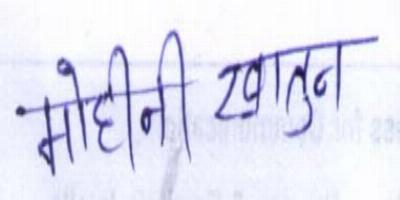 मोहीनी खातुन